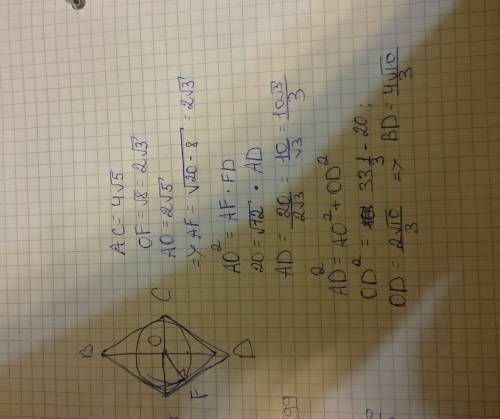 AC = 4√5
OF = √8 = 2√3
AO = 2√5
=> AF = √20 - 8 = 2√3
AO² = AF · FD
20 = √12 · AD
AD = 20/2√3 = 10/√3 = 10√3/3
AD² = AO² + OD²
OD² = 33 1/3 - 20;
OD = 2√10/3 => BD = 4√10/3
B
C
O
D
F
99